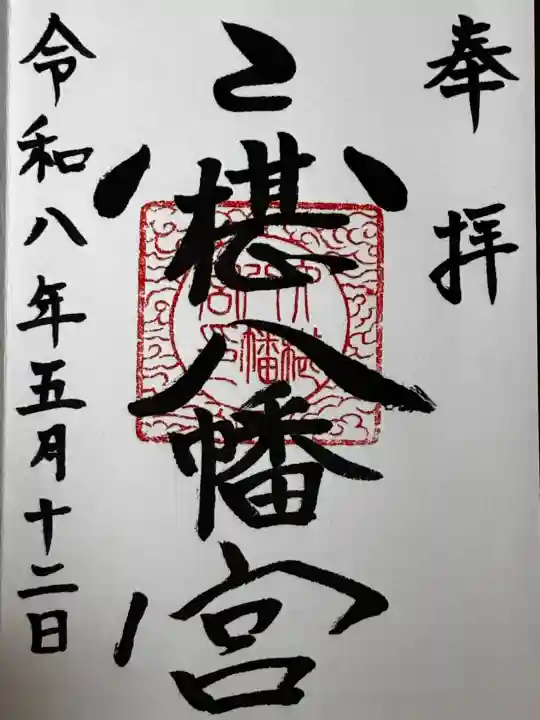 奉拝
六椹八幡宮
令和八年五月十二日